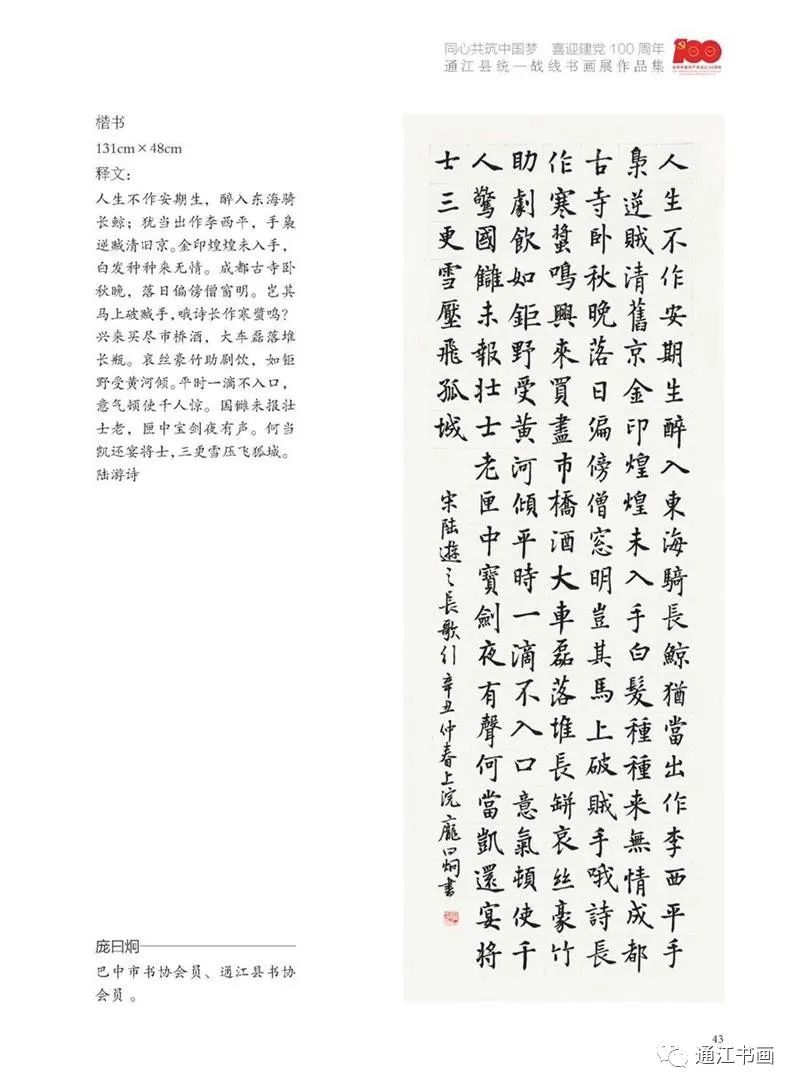 同心共筑中国梦 喜迎建党100周年
通江县统一战线书画展作品集
楷书
131cm×48cm
释文：
人生不作安期生，醉入东海骑
长鲸；犹当出作李西平，手枭
逆贼清旧京。金印煌煌未入手，
白发种种来无情。成都古寺卧
秋晚，落日偏傍僧窗明。岂其
马上破贼手，哦诗长作寒螀鸣？
兴来买尽市桥酒，大车磊落堆
长瓶。哀丝豪竹助剧饮，如钜
野受黄河倾。平时一滴不入口，
意气顿使千人惊。国雠未报壮
士老，匣中宝剑夜有声。何当
凯还宴将士，三更雪压飞狐城。
陆游诗
人生不作安期生醉入東海騎長鯨猶當出作李西平手
梟逆賊清舊京金印煌煌未入手白髮種種来無情成都
古寺卧秋晚落日偏傍僧窓明豈其馬上破賊手哦詩長
作寒螀鳴興來買盡市橋酒大車磊落堆長缾哀丝豪竹
助劇飲如鉅野受黄河傾平時一滴不入口意氣頓使千
人驚國讎未報壮士老匣中寶劍夜有聲何當凱還宴將
士三更雪壓飛孤城
宋陆遊之長歌引辛丑仲春上浣龐曰炯書
庞曰炯
巴中市书协会员、通江县书协
会员。
43
通江书画